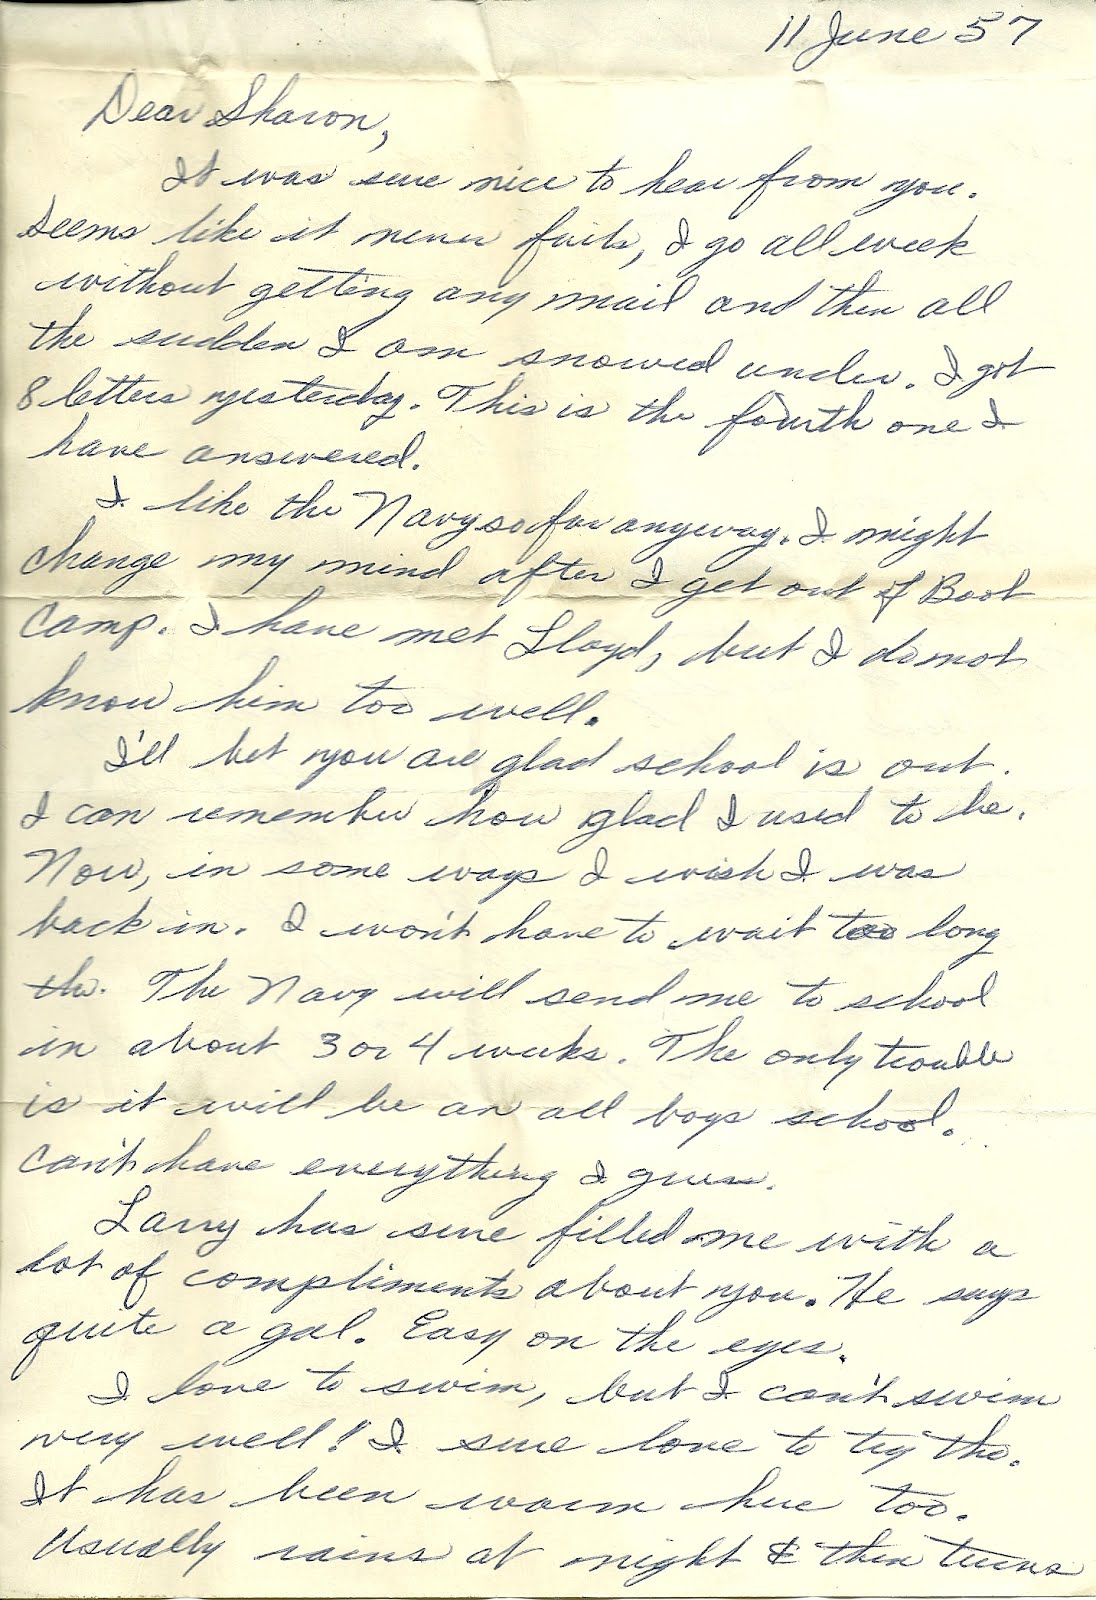 11 June 57
Dear Sharon,
It was sure nice to hear from you.
Seems like it never fails, I go all week
without getting any mail and then all
the sudden I am snowed under. I got
8 letters yesterday. This is the fourth one I
have answered.
I like the Navy so far anyway. I might
change my mind after I get out of Boot
Camp. I have met Lloyd, but I do not
know him too well.
I'll bet you are glad school is out.
I can remember how glad I used to be.
Now, in some ways I wish I was
back in. I won't have to wait too long
tho. The Navy will send me to school
in about 3 or 4 weeks. The only trouble
is it will be an all boys school.
Can't have everything I guess.
Larry has sure filled me with a
lot of compliments about you. He says
quite a gal. Easy on the eyes.
I love to swim, but I can't swim
very well! I sure love to try tho.
It has been warm here too.
Usually rains at night & then turns